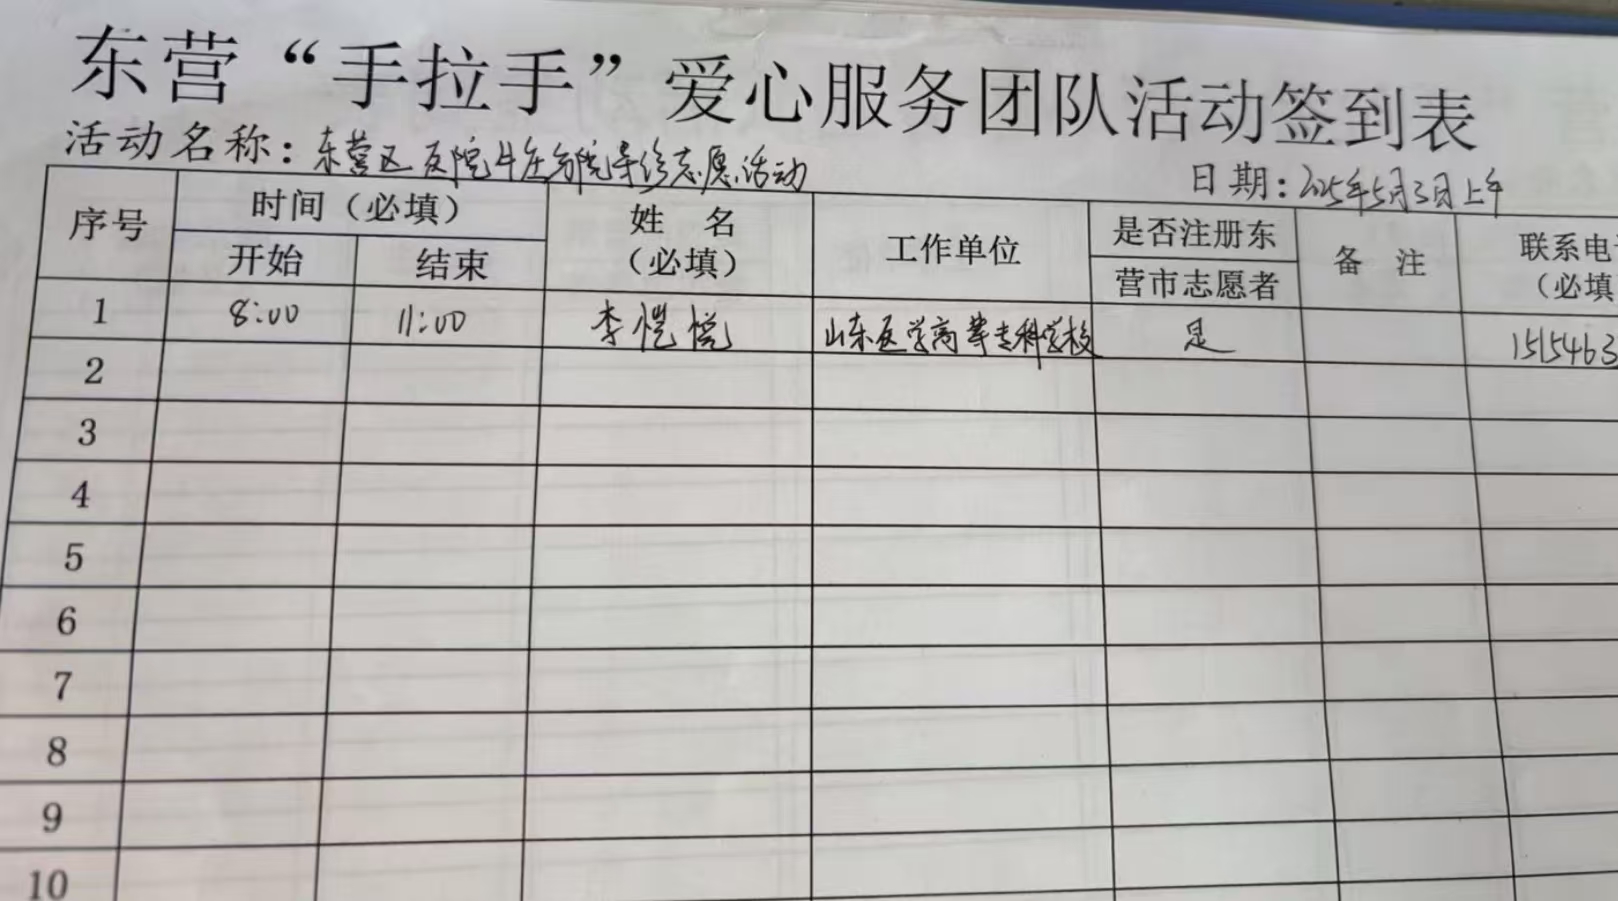 东营“手拉手”爱心服务团队活动签到表
活动名称：东营区医院牛庄分院导诊志愿活动
日期：2025年5月3日上午
序号 时间（必填） 姓 名（必填） 工作单位 是否注册东营市志愿者 备 注 联系电（必填
开始 结束
1 8:00 11:00 李恺悦 山东医学高等专科学校 是 1515463
2
3
4
5
6
7
8
9
10